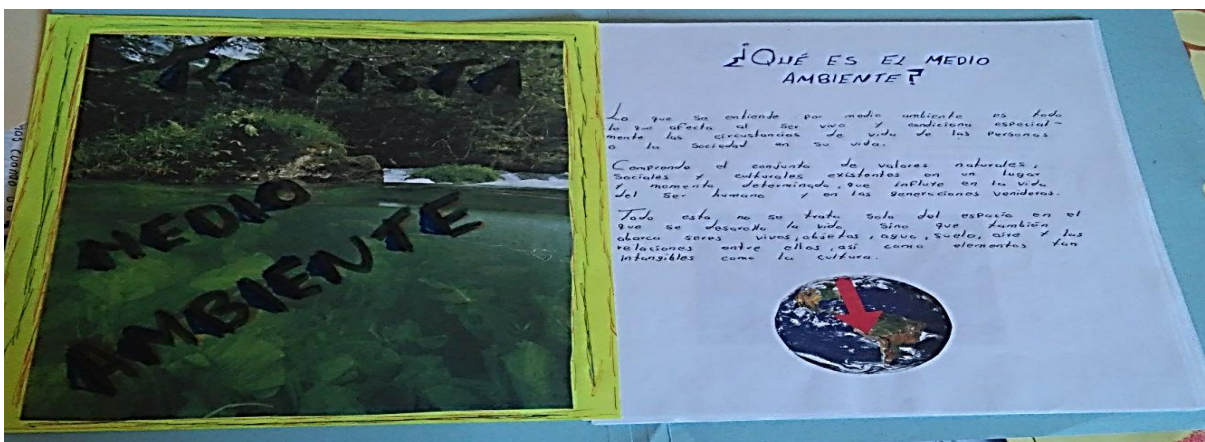 REVISTA
MEDIO
AMBIENTE
¿QUÉ ES EL MEDIO
AMBIENTE?
Lo que se entiende por medio ambiente es todo
lo que afecta al ser vivo y condiciona especial-
mente las circustancias de vida de las Personas
o la Sociedad en su vida.
Comprende el conjunto de valores naturales,
Sociales y culturales existentes en un lugar
y momento determinado, que influye en la vida
del Ser humano y en las generaciones venideras.
Todo esto no se trata Solo del espacio en el
que se desarolla la vida Sino que también
abarca seres vivos, objetos, agua, suelo, aire y las
relaciones entre ellos, así como elementos tan
intangibles como la cultura.